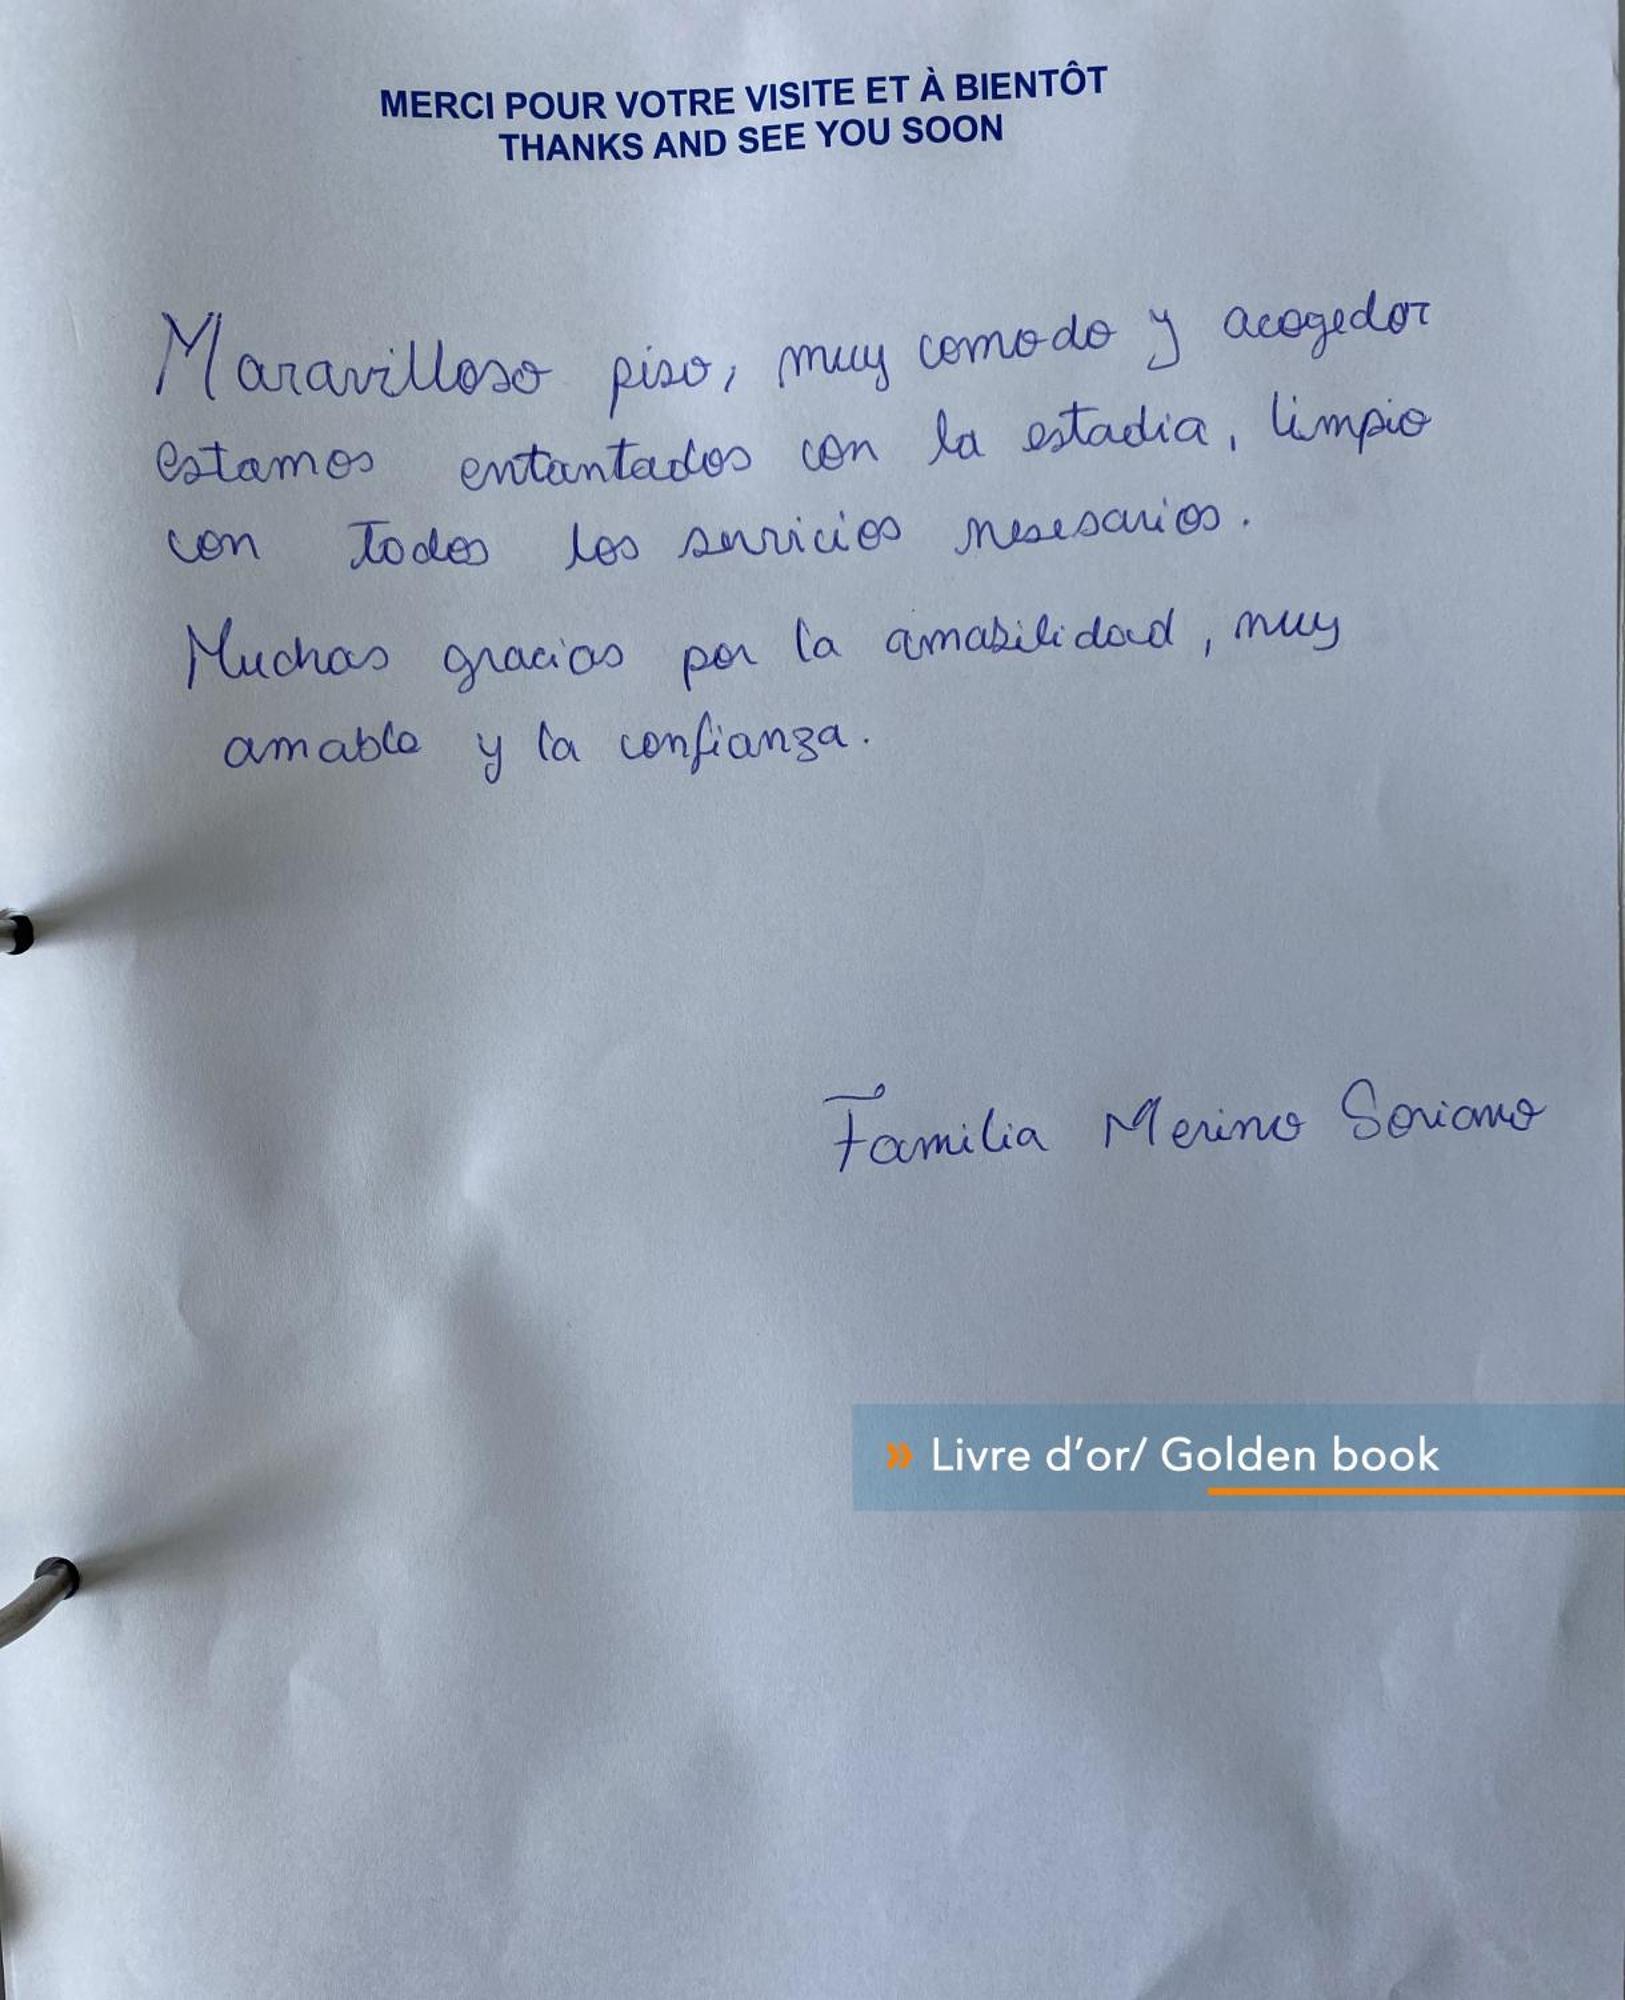 MERCI POUR VOTRE VISITE ET À BIENTÔT
THANKS AND SEE YOU SOON
Maravilloso piso, muy comodo y acogedor
estamos entantados con la estadia, limpio
con todos los servicios nesesarios.
Muchas gracias por la amabilidad, muy
amable y la confianza.
Familia Merino Soriano
» Livre d'or/ Golden book